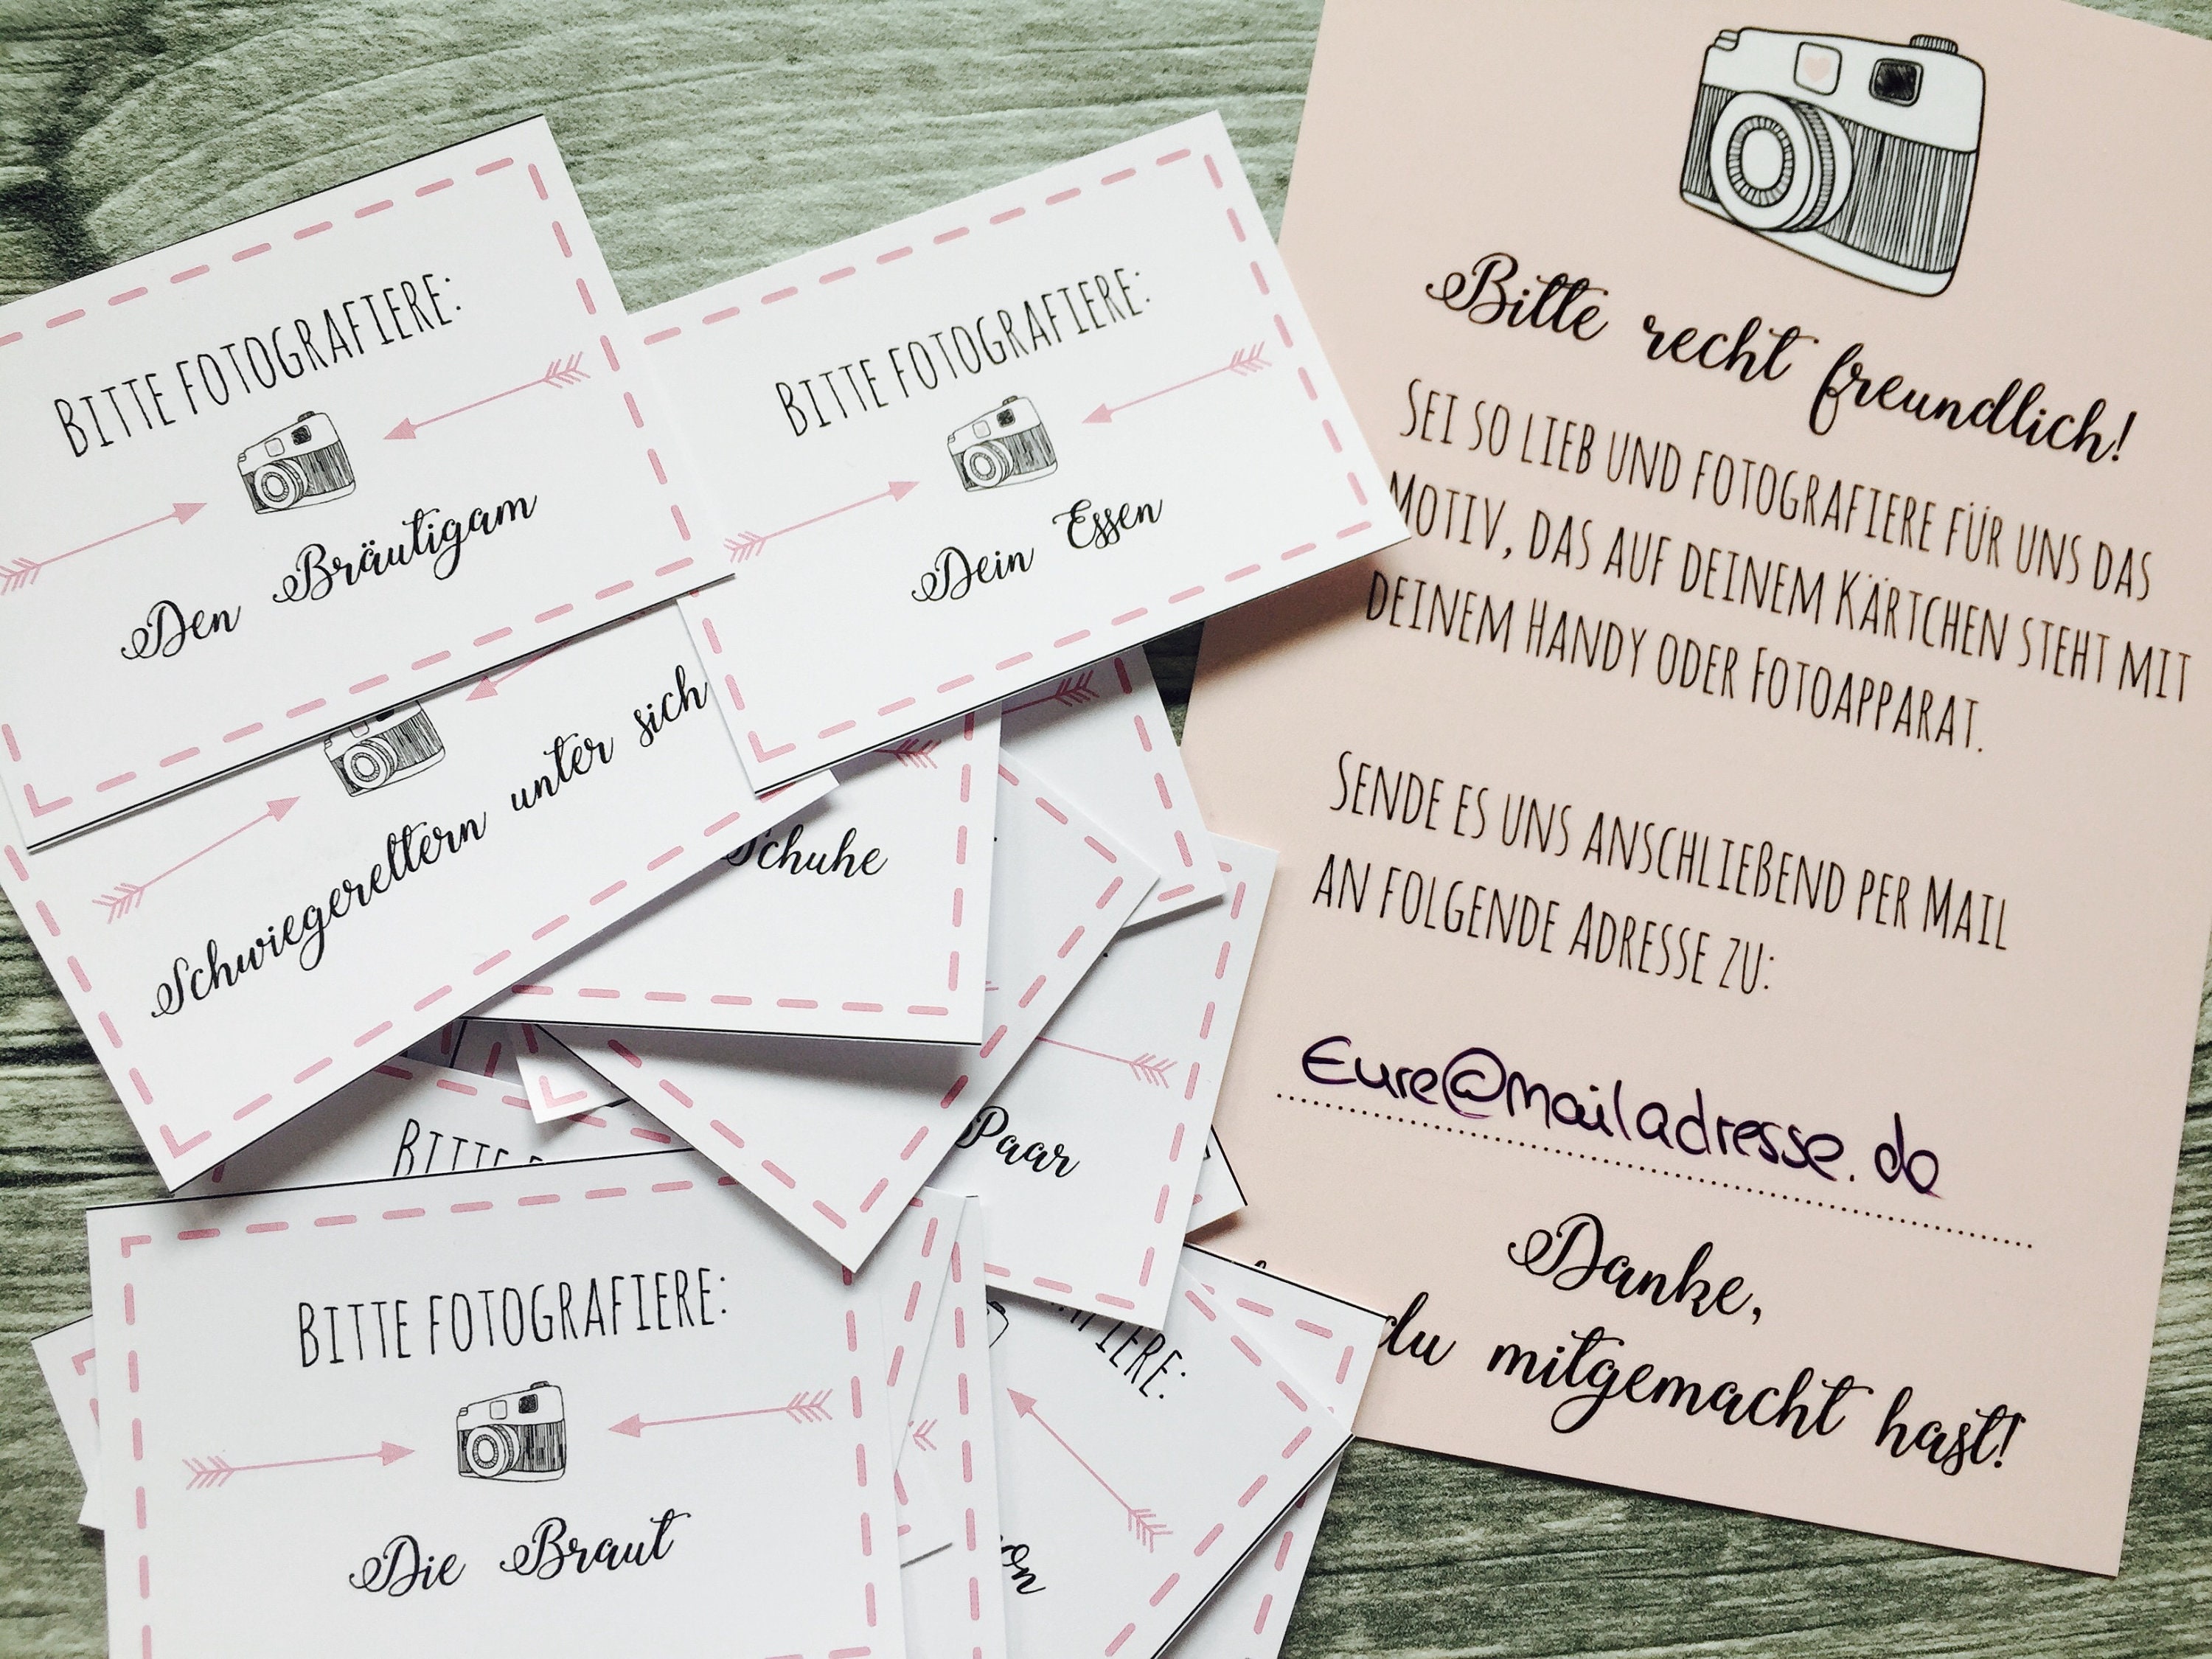 BITTE FOTOGRAFIERE:
Den Bräutigam
BITTE FOTOGRAFIERE:
Dein Essen
Schwiegereltern unter sich
Schuhe
Paar
BITTE
BITTE FOTOGRAFIERE:
Die Braut
Bitte recht freundlich!
SEI SO LIEB UND FOTOGRAFIERE FÜR UNS DAS
MOTIV, DAS AUF DEINEM KÄRTCHEN STEHT MIT
DEINEM HANDY ODER FOTOAPPARAT.
SENDE ES UNS ANSCHLIEßEND PER MAIL
AN FOLGENDE ADRESSE ZU:
Eure@mailadresse.de
Danke,
du mitgemacht hast!